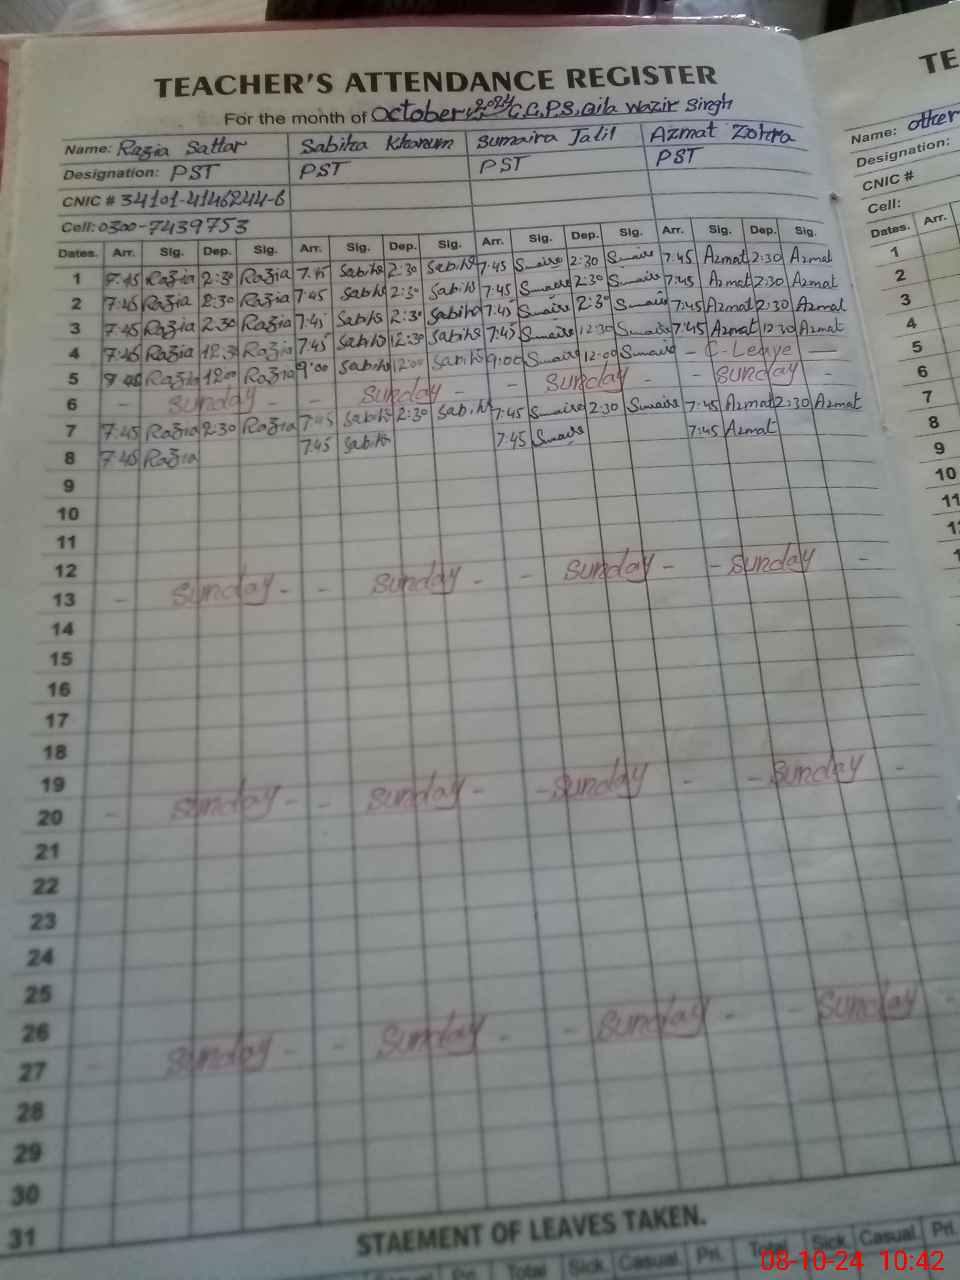 TEACHER'S ATTENDANCE REGISTER
For the month of October 2024 G.G.P.S. Qila Wazir Singh
Name: Razia Sattar Sabiha Khanum Sumaira Jalil Azmat Zohra
Designation: PST PST PST PST
CNIC # 34101-4146244-6
Cell: 0300-7439753
Dates. Arr. Sig. Dep. Sig. Arr. Sig. Dep. Sig. Arr. Sig. Dep. Sig. Arr. Sig. Dep. Sig.
1 7:45 Razia 2:30 Razia 7:45 Sabiha 2:30 Sabiha 7:45 Sumaira 2:30 Sumaira 7:45 Azmat 2:30 Azmat
2 7:45 Razia 2:30 Razia 7:45 Sabiha 2:30 Sabiha 7:45 Sumaira 2:30 Sumaira 7:45 Azmat 2:30 Azmat
3 7:45 Razia 2:30 Razia 7:45 Sabiha 2:30 Sabiha 7:45 Sumaira 2:30 Sumaira 7:45 Azmat 2:30 Azmat
4 7:45 Razia 12:30 Razia 7:45 Sabiha 12:30 Sabiha 7:45 Sumaira 12:30 Sumaira 7:45 Azmat 12:30 Azmat
5 Razia 12:00 Razia 9:00 Sabiha 12:00 Sabiha 9:00 Sumaira 12:00 Sumaira - C-Leave -
6 - Sunday - - Sunday - - Sunday - - Sunday -
7 7:45 Razia 2:30 Razia 7:45 Sabiha 2:30 Sabiha 7:45 Sumaira 2:30 Sumaira 7:45 Azmat 2:30 Azmat
8 7:45 Razia 7:45 Sabiha 7:45 Sumaira 7:45 Azmat
9
10
11
12
13 - Sunday - - Sunday - - Sunday - - Sunday -
14
15
16
17
18
19
20 - Sunday - - Sunday - - Sunday - - Sunday -
21
22
23
24
25
26
27 - Sunday - - Sunday - - Sunday - - Sunday -
28
29
30
31
STAEMENT OF LEAVES TAKEN.
Pri. Total Sick. Casual. Pri. Total Sick. Casual. Pri.
TE
Name: other
Designation:
CNIC #
Cell:
Dates. Arr.
1
2
3
4
5
6
7
8
9
10
11
08-10-24 10:42